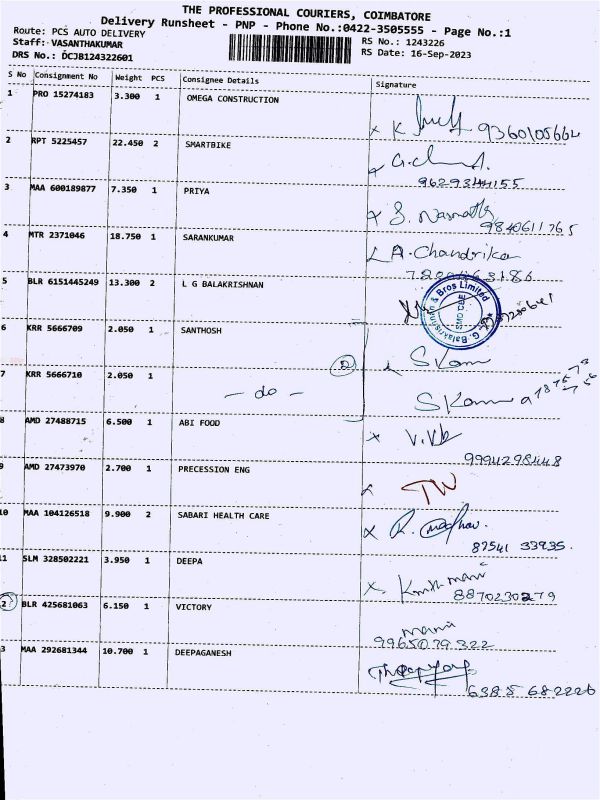 THE PROFESSIONAL COURIERS, COIMBATORE
Delivery Runsheet - PNP - Phone No.:0422-3505555 - Page No.:1
Route: PCS AUTO DELIVERY
Staff: VASANTHAKUMAR
RS No.: 1243226
DRS No.: DCJB124322601
RS Date: 16-Sep-2023
S No Consignment No Weight PCS Consignee Details Signature
1 PRO 15274183 3.300 1 OMEGA CONSTRUCTION
K
9360105664
2 RPT 5225457 22.450 2 SMARTBIKE
9629344155
3 MAA 600189877 7.350 1 PRIYA
9840611765
4 MTR 2371046 18.750 1 SARANKUMAR
A. Chandrika
5 BLR 6151445249 13.300 2 L G BALAKRISHNAN
G. Balakrishnan & Bros Limited
6 KRR 5666709 2.050 1 SANTHOSH
2
S Kam
7 KRR 5666710 2.050 1
- do -
S Kam
8 AMD 27488715 6.500 1 ABI FOOD
9994298448
9 AMD 27473970 2.700 1 PRECESSION ENG
TW
10 MAA 104126518 9.900 2 SABARI HEALTH CARE
R. Madhav.
87541 33935.
11 SLM 328502221 3.950 1 DEEPA
8870230279
12 BLR 425681063 6.150 1 VICTORY
mani
9965079322
3 MAA 292681344 10.700 1 DEEPAGANESH
6385 682226